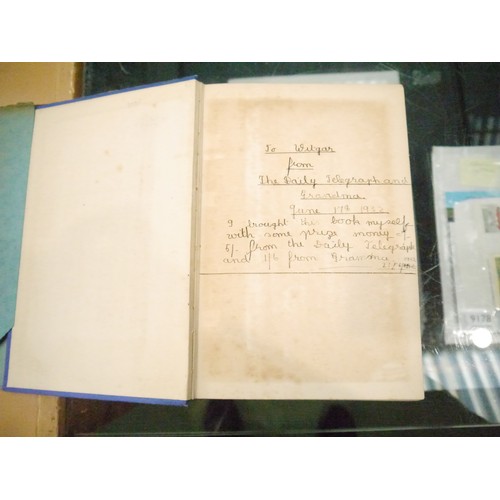 To Wilgar
from
The Daily Telegraph and
Grandma.
June 17th 1933
I brought this book myself
with some prize money of
5/- from the Daily Telegraph
and 1/6 from Grammie
9178